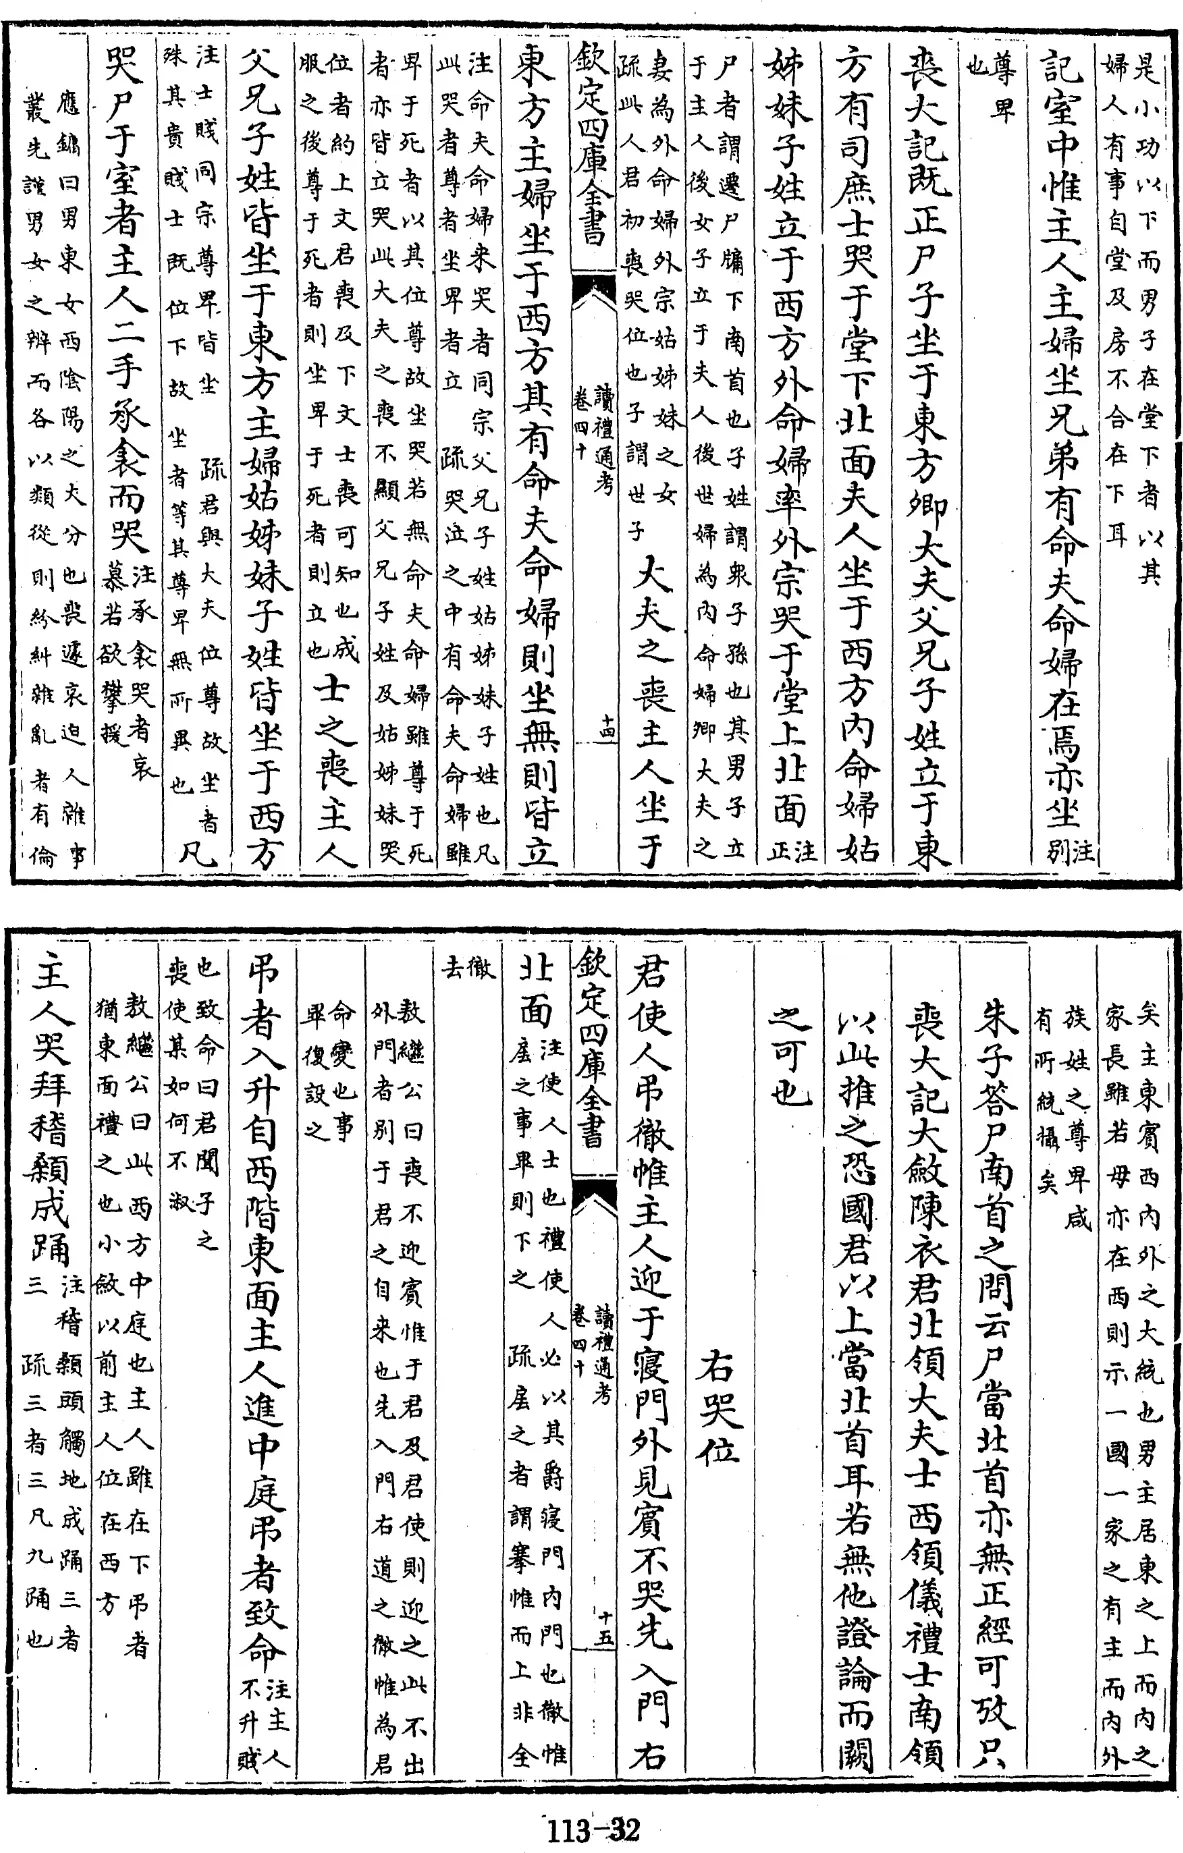 是小功以下而男子在堂下者以其
婦人有事自堂及房不合在下耳
記室中惟主人主婦坐兄弟有命夫命婦在焉亦坐注別
尊卑也
喪大記既正尸子坐于東方卿大夫父兄子姓立于東
方有司庶士哭于堂下北面夫人坐于西方内命婦姑
姊妹子姓立于西方外命婦率外宗哭于堂上北面注正
尸者謂遷尸牖下南首也子姓謂衆子孫也其男子立
于主人後女子立于夫人後世婦為内命婦卿大夫之
妻為外命婦外宗姑姊妹之女
疏此人君初喪哭位也子謂世子
大夫之喪主人坐于
欽定四庫全書
讀禮通考
卷四十
十四
東方主婦坐于西方其有命夫命婦則坐無則皆立
注命夫命婦来哭者同宗父兄子姓姑姊妹子姓也凡
此哭者尊者坐卑者立 疏哭泣之中有命夫命婦雖
卑于死者以其位尊故坐哭若無命夫命婦雖尊于死
者亦皆立哭此大夫之喪不顯父兄子姓及姑姊妹哭
位者約上文君喪及下文士喪可知也成
服之後尊于死者則坐卑于死者則立也
士之喪主人
父兄子姓皆坐于東方主婦姑姊妹子姓皆坐于西方
注士賤同宗尊卑皆坐 疏君與大夫位尊故坐者
殊其貴賤士既位下故坐者等其尊卑無所異也
凡
哭尸于室者主人二手承衾而哭注承衾哭者哀
慕若欲攀援
應鏞曰男東女西陰陽之大分也喪遽哀迫人雜事
叢先謹男女之辨而各以類從則紛糾雜亂者有倫
矣主東賓西内外之大統也男主居東之上而内之
家長雖若母亦在西則示一國一家之有主而内外
族姓之尊卑咸
有所統攝矣
朱子答尸南首之問云尸當北首亦無正經可攷只
喪大記大斂陳衣君北領大夫士西領儀禮士南領
以此推之恐國君以上當北首耳若無他證論而闕
之可也
右哭位
君使人弔徹帷主人迎于寢門外見賓不哭先入門右
欽定四庫全書
讀禮通考
卷四十
十五
北面注使人士也禮使人必以其爵寢門内門也徹帷
扂之事畢則下之 疏扂之者謂褰帷而上非全
徹去
敖繼公曰喪不迎賓惟于君及君使則迎之此不出
外門者别于君之自来也先入門右道之徹帷為君
命變也事
畢復設之
弔者入升自西階東面主人進中庭弔者致命注主人
不升賤
也致命曰君聞子之
喪使某如何不淑
敖繼公曰此西方中庭也主人雖在下弔者
猶東面禮之也小斂以前主人位在西方
主人哭拜稽顙成踊注稽顙頭觸地成踊三者
三 疏三者三凡九踊也
113-32